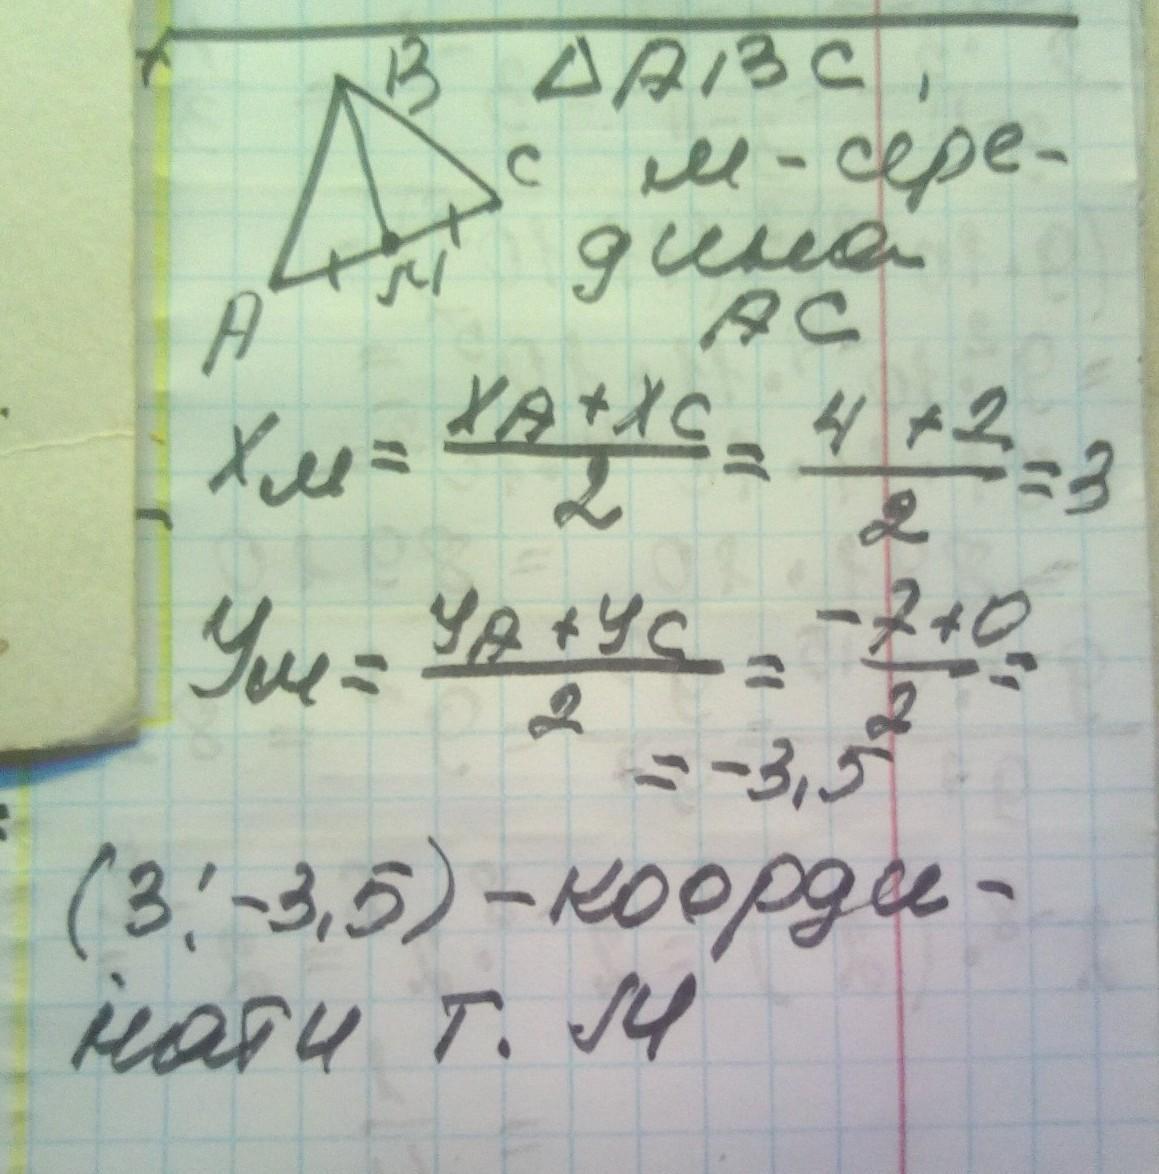 B
C
A
M
△ABC,
M - сере-
дина
AC
Xм = XA + XC / 2 = 4 + 2 / 2 = 3
Yм = YA + YC / 2 = -7 + 0 / 2 =
= -3,5
(3; -3,5) - коорди-
нати т. M